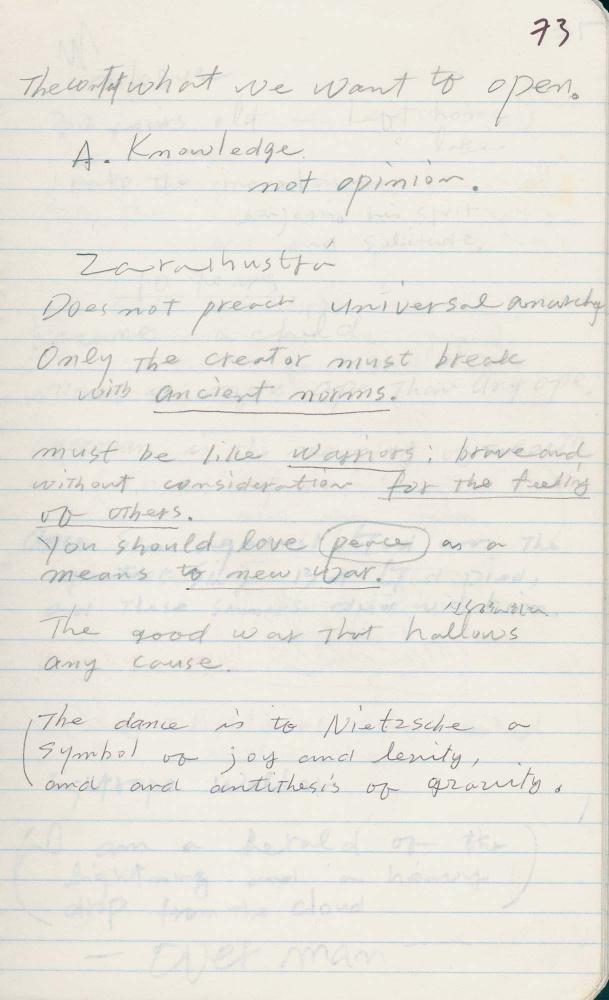 73
The what we want to open.
A. Knowledge
not opinion.
Zarathustra
Does not preach universal anarchy
Only the creator must break
with ancient norms.
must be like warriors; brave and
without consideration for the feeling
of others.
You should love peace as a
means to new war.
The good war that hallows
any cause.
The dance is to Nietzsche a
symbol of joy and levity,
and and antithesis of gravity.